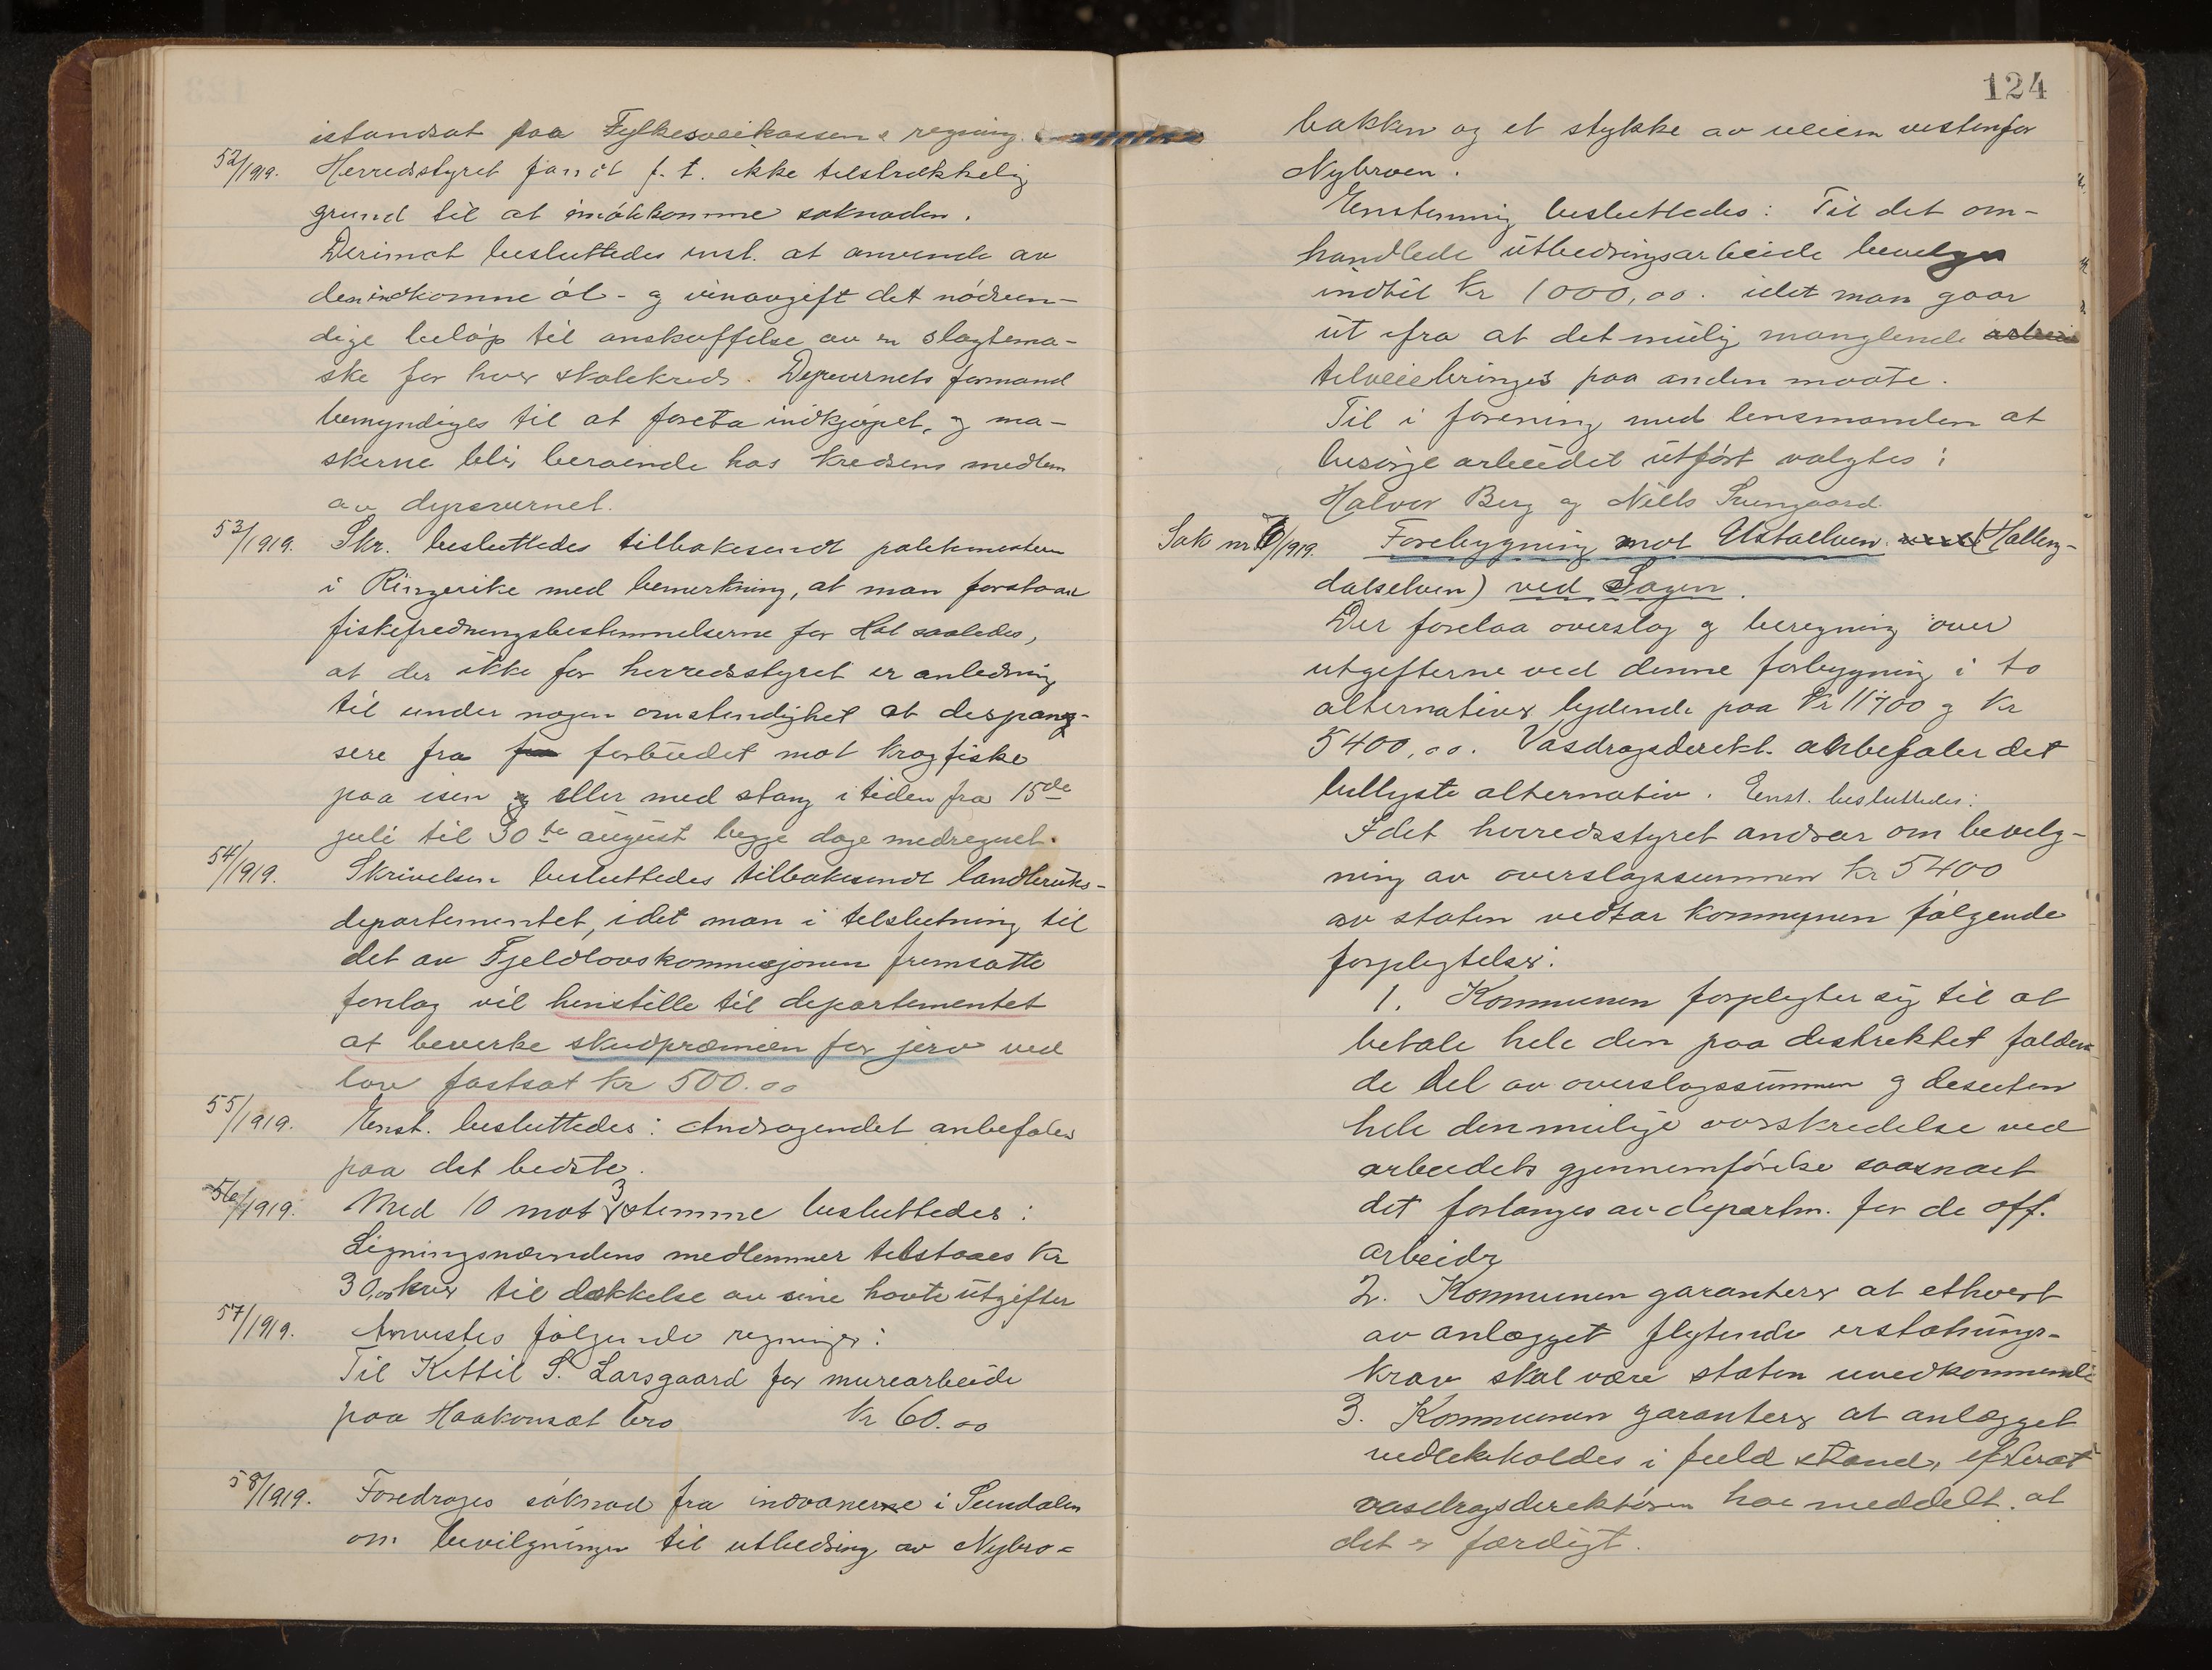 istandsat paa Fylkesveikassens regning.
52/1919. Herredstyret fandt f. t. ikke tilstrækkelig
grund til at imøtekomme søknaden.
Derimot besluttedes enst. at anvende av
den indkomne øl- og vinavgift det nødven-
dige beløp til anskaffelse av en slagtema-
ske for hver skolekreds. Dyrevernets formand
bemyndiges til at foreta indkjøpet, og ma-
skerne blir beroende hos kredsens medlem
av dyrevernet.
53/1919. Skr. besluttedes tilbakesendt politimesteren
i Ringerike med bemerkning, at man forstaar
fiskefredningsbestemmelserne for Hol saaledes,
at der ikke for herredsstyret er anledning
til under nogen omstendighet at despang-
sere fra forbudet mot krogfiske
paa isen eller med stang i tiden fra 15de
juli til 30te august begge dage medregnet.
54/1919. Skrivelsen besluttedes tilbakesendt landbruks-
departementet, idet man i tilslutning til
det av Fjeldlovskommisjonen fremsatte
forslag vil henstille til departementet
at bevirke skudpræmien for jerv ved
lov fastsat kr 500.00
55/1919. Enst. besluttedes: Andragendet anbefales
paa det bedste.
56/1919. Med 10 mot 3 stemme besluttedes:
Ligningsnævndens medlemmer tilstaaes kr
30,00 hver til dækkelse av sine havte utgifter
57/1919. Anvistes følgende regninger:
Til Kittil S. Larsgaard for murearbeide
paa Haakonsæt bro kr 60.00
58/1919. Foredroges søknad fra indvaanerne i Sundalen
om bevilgninger til utbedring av Nybro-
124
bakken og et stykke av veien vestenfor
Nybroen.
Enstemmig besluttedes: Til det om-
handlede utbedringsarbeide bevilges
indtil kr 1000,00. idet man gaar
ut ifra at det mulig manglende
tilveiebringes paa anden maate.
Til i forening med lensmanden at
besørge arbeidet utført valgtes:
Halvor Berg og Nills
Sak nr 6/1919. Forebygning mot Ustaelven (Halling-
dalselven) ved Hagen.
Der forelaa overslag og beregning over
utgifterne ved denne forbygning i to
alternativer lydende paa kr 11700 og kr
5400,00. Vasdragsdirekt. anbefaler det
billigste alternativ. Enst. besluttedes:
Idet herredsstyret andrar om bevilg-
ning av overslagssummen kr 5400
av staten vedtar kommunen følgende
forpligtelser:
1. Kommunen forpligter sig til at
betale hele den paa distriktet falden-
de del av overslagssummen og desuten
hele den mulige overskridelse ved
arbeidets gjennemførelse saasnart
det forlanges av departm. for de off.
arbeider
2. Kommunen garanterer at ethvert
av anlægget flytende erstatnings-
krav skal være staten uvedkommende
3. Kommunen garanterer at anlægget
vedlikeholdes i fuld stand, efterat
vasdragsdirektøren har meddelt at
det er færdigt.